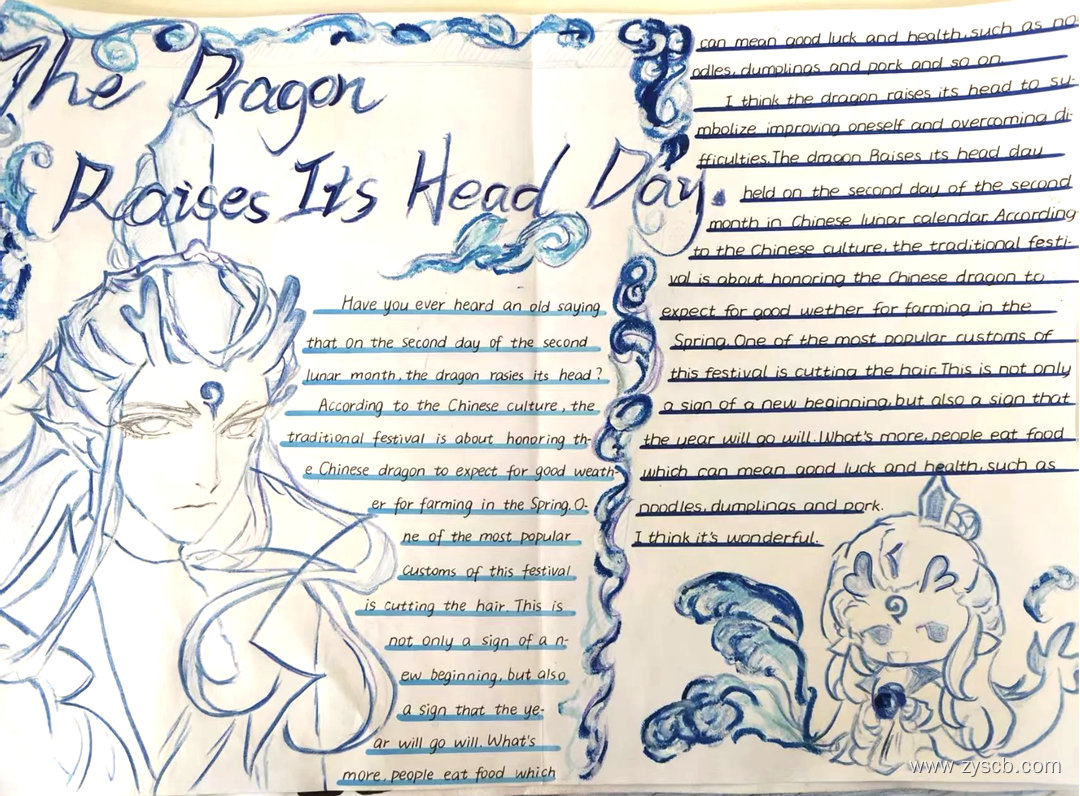 The Dragon
Raises Its Head Day.
Have you ever heard an old saying
that on the second day of the second
lunar month, the dragon rasies its head?
According to the Chinese culture, the
traditional festival is about honoring th-
e Chinese dragon to expect for good weath-
er for farming in the Spring. O-
ne of the most popular
customs of this festival
is cutting the hair. This is
not only a sign of a n-
ew beginning, but also
a sign that the ye-
ar will go will. What's
more, people eat food which
can mean good luck and health, such as no-
odles, dumplings and pork and so on.
I think the dragon raises its head to su-
mbolize improving oneself and overcoming di-
fficulties. The dragon Raises its head day
held on the second day of the second
month in Chinese lunar calendar. According
to the Chinese culture, the traditional festi-
val is about honoring the Chinese dragon to
expect for good wether for farming in the
Spring. One of the most popular customs of
this festival is cutting the hair. This is not only
a sign of a new beginning, but also a sign that
the year will go will. What's more, people eat food
which can mean good luck and health, such as
noodles, dumplings and pork.
I think it's wonderful.
www.zyscb.com